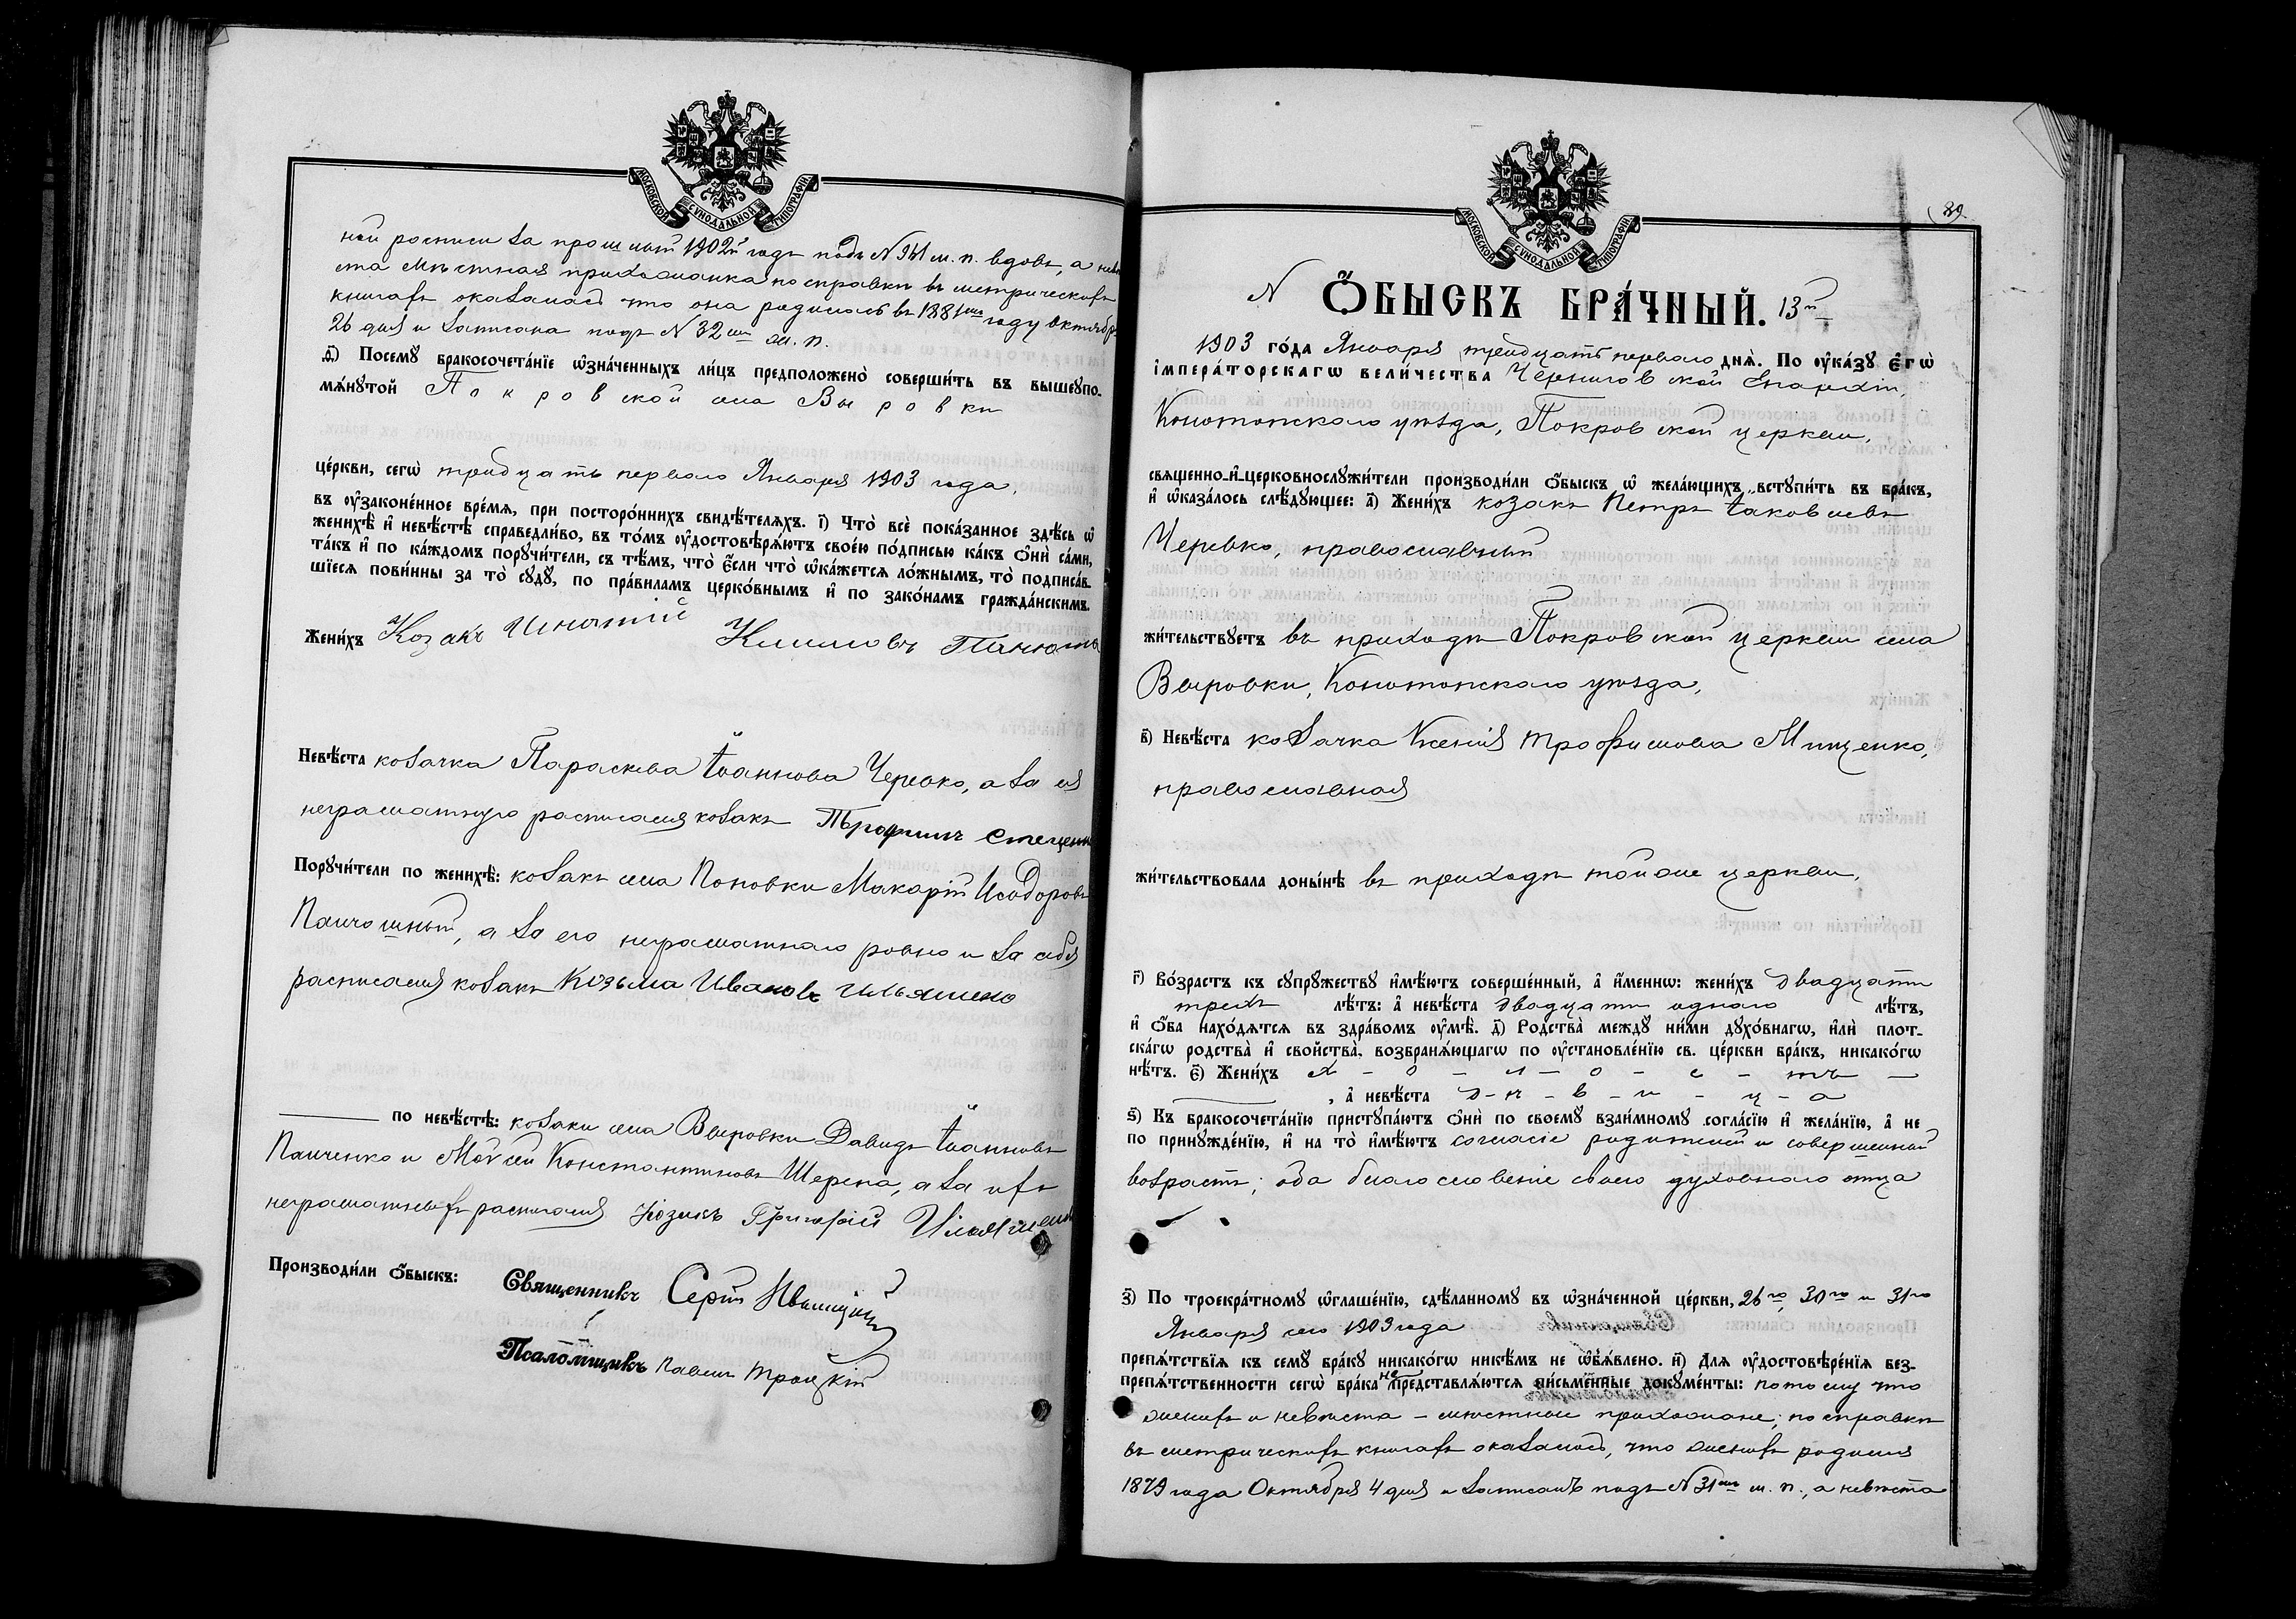 МОСКОВСКОЙ СѴНОДАЛЬНОЙ ТИПОГРАФІИ.
ной росписи за прошлый 1902й годъ подъ N 941 м. п. вдовъ, а неве
ста мѣстная прихожанка по справкѣ въ метрическихъ
книгахъ оказалось что она родилась въ 1881мъ году Октября
26 дня и записана подъ N 32мъ ж. п.
д҃) Посемꙋ̀ бракосочета́нїе ѡ҆зна́ченныхъ ли́цъ предположено̀ соверши́ть въ вышеꙋпо-
мѧ́нꙋтой Покровской села Выровки
це́ркви, сегѡ̀ тридцать перваго Января 1903 года,
въ ᲂу҆законе́нное вре́мѧ, при посторо́ннихъ свидѣ́телѧхъ. і҃) Что̀ всѐ пока́занное здѣ́сь ѡ҆
женихѣ̀ и҆ невѣ́стѣ справедли́во, въ то́мъ ᲂу҆достовѣрѧ́ютъ свое́ю по́дписью ка́къ ѻ҆нѝ са́ми,
та́къ и҆ по ка́ждомъ порꙋчи́тели, съ тѣ́мъ, что̀ є҆́сли что̀ ѡ҆ка́жетсѧ ло́жнымъ, то̀ подписа́в-
шїесѧ пови́нны за то̀ сꙋдꙋ̀, по пра́виламъ церко́внымъ и҆ по зако́намъ гражда́нскимъ.
Жени́хъ Козакъ Игнатій Климовъ
Невѣ́ста козачка Параскева Іоаннова Черевко, а за ея
неграматную расписался козакъ Трофимъ
Порꙋчи́тели по женихѣ̀: козакъ села Поповки Макарій Исидоровъ
а за его неграматнаго ровно и за себя
расписался козакъ Козьма Ивановъ Ильяшенко
по невѣ́стѣ: козаки села Выровки Давидъ Іоанновъ
Панченко и Моѵсей Константиновъ Шерепа, а за ихъ
неграматныхъ расписался Козакъ Григорій
Производи́ли ѻ҆́быскъ: Священникъ Сергій
Псаломщикъ Павелъ Троцкій
39.
МОСКОВСКОЙ СѴНОДАЛЬНОЙ ТИПОГРАФІИ.
N Ѻ҆́БЫСКЪ БРА́ЧНЫЙ. 13й
1903 го́да Января тридцать перваго днѧ̀. По ᲂу҆ка́зꙋ є҆гѡ̀
і҆мпера́торскагѡ вели́чества Черниговской Епархіи,
Конотопскаго уѣзда, Покровской церкви,
свѧщенно-и҆-церковнослꙋжи́тели производи́ли ѻ҆́быскъ ѡ҆ жела́ющихъ встꙋпи́ть въ бра́къ,
и҆ ѡ҆каза́лось слѣ́дꙋющее: а҃) Жени́хъ козакъ Петръ Іаковлевъ
Черевко, православный
жи́тельствꙋетъ въ приходѣ Покровской церкви села
Выровки, Конотопскаго уѣзда,
в҃) Невѣ́ста козачка Ксенія Трофимова Мищенко,
православная
жи́тельствовала доны́нѣ въ приходѣ тойже церкви,
г҃) Во́зрастъ къ сꙋпрꙋ́жествꙋ и҆мѣ́ютъ соверше́нный, а҆ и҆́меннѡ: жени́хъ двадцати
трехъ лѣ́тъ: а҆ невѣ́ста двадцати одного лѣ́тъ,
и҆ ѻ҆́ба нахо́дѧтсѧ въ здра́вомъ ᲂу҆мѣ̀. д҃) Родства̀ междꙋ̀ ни́ми дꙋхо́внагѡ, и҆лѝ плот-
ска́гѡ родства̀ и҆ свойства̀, возбранѧ́ющагѡ по ᲂу҆становле́нїю св. це́ркви бра́къ, никако́гѡ
нѣ́тъ. є҃) Жени́хъ х - о - л - о - с - тъ -
, а҆ невѣ́ста д-ѣ-в-и-ц-а
ѕ҃) Къ бракосочета́нїю пристꙋпа́ютъ ѻ҆нѝ по своемꙋ̀ взаи́мномꙋ согла́сїю и҆ жела́нїю, а҆ не
по принꙋжде́нїю, и҆ на то̀ и҆мѣ́ютъ согласіе родителей и совершенный
возрастъ; оба благословеніе своего духовнаго отца
з҃) По троекра́тномꙋ ѡ҆глаше́нїю, сдѣ́ланномꙋ въ ѡ҆зна́ченной це́ркви, 26го, 30го и 31го
Января сего 1903 года
препѧ́тствїѧ къ семꙋ̀ бра́кꙋ никако́гѡ никѣ́мъ не ѡ҆б̾ѧ́влено. и҃) Длѧ ᲂу҆достовѣре́нїѧ без-
препѧ́тственности сегѡ̀ бра́ка не представлѧ́ютсѧ пи́сьменные докꙋме́нты: потому что
женихъ и невѣста - мѣстные прихожане; по справкѣ
въ метрическихъ книгахъ оказалось, что женихъ родился
1879 года Октября 4 дня и записанъ подъ N 31мъ м. п., а невѣста